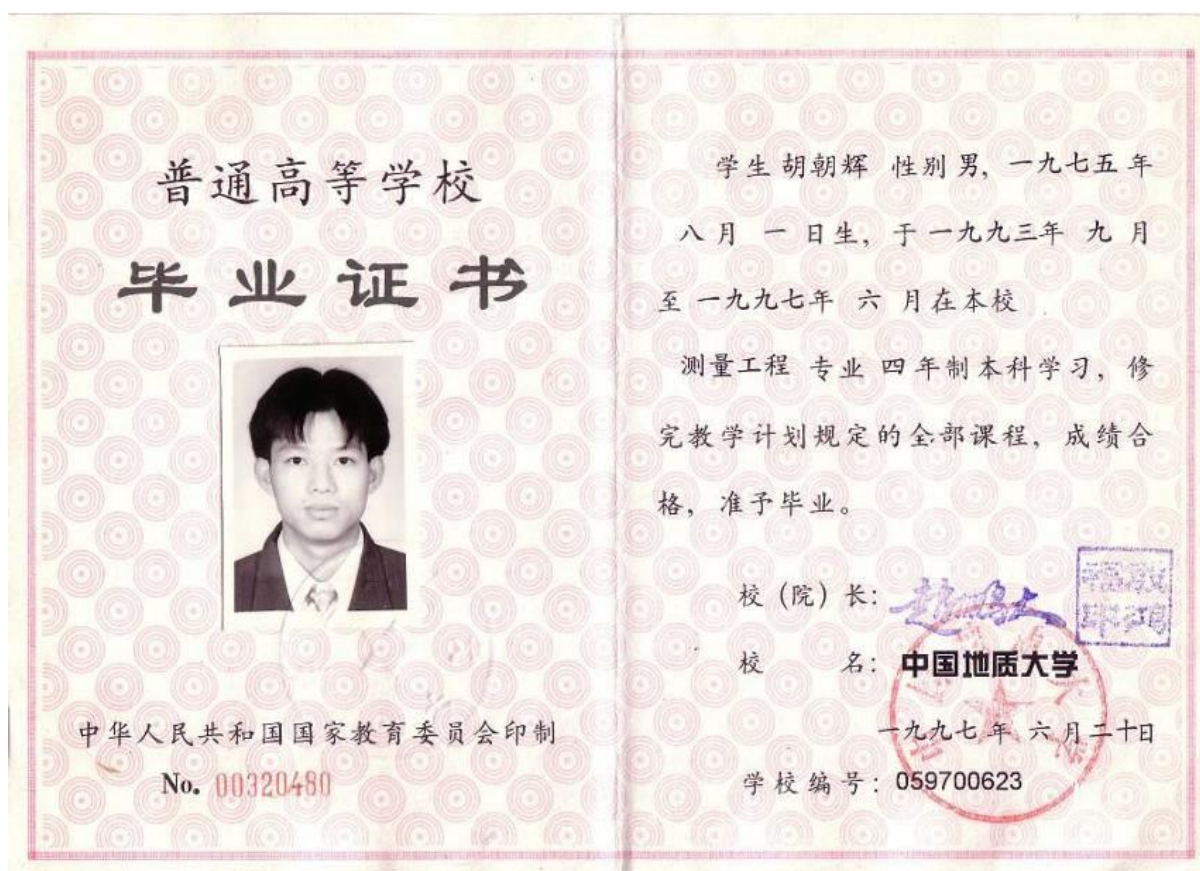 普通高等学校
毕业证书
中华人民共和国国家教育委员会印制
No. 00320480
学生 胡朝辉 性别 男, 一九七五 年
八 月 一 日生, 于 一九九三年 九 月
至 一九九七年 六 月在本校
测量工程 专业 四 年制本科学习, 修
完教学计划规定的全部课程, 成绩合
格, 准予毕业。
校(院)长: 赵鹏大
校 名: 中国地质大学
一九九七 年 六 月二十日
学校编号: 059700623